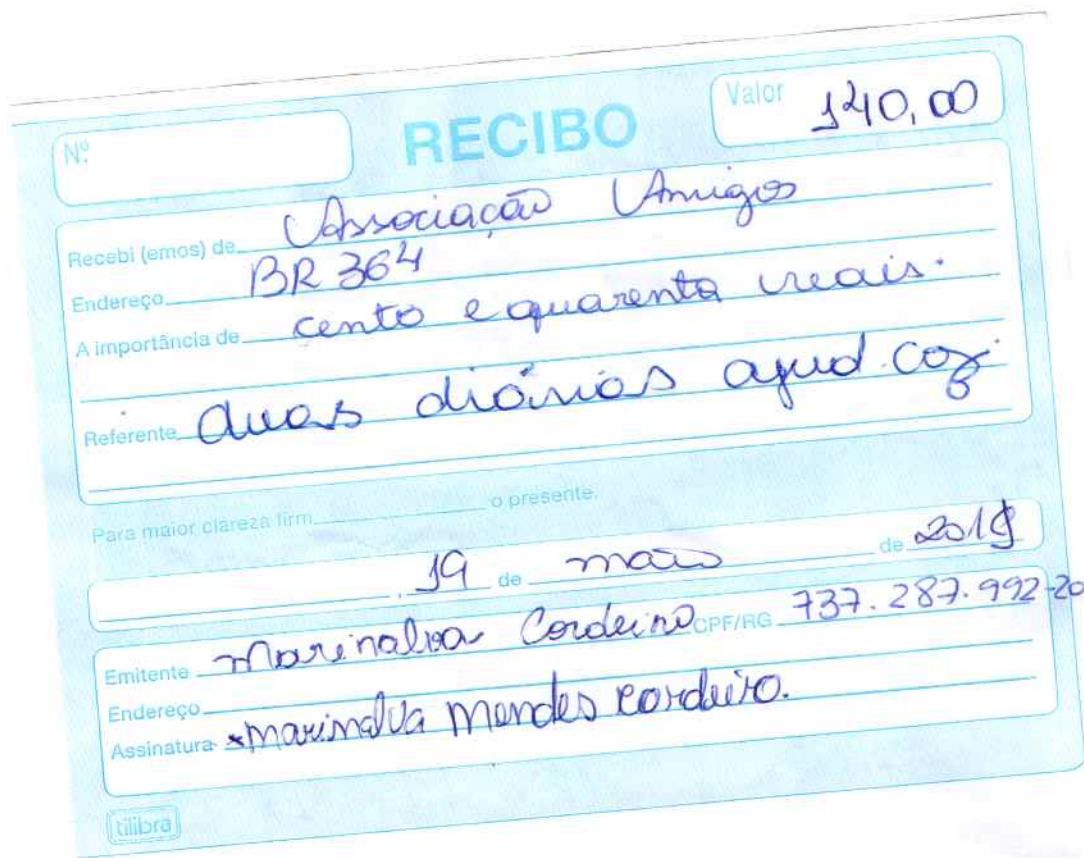 Nº
RECIBO
Valor 140,00
Recebi (emos) de Associação Amigos
Endereço BR 364
A importância de cento e quarenta reais.
Referente duas diárias ajud. coz.
Para maior clareza firm o presente.
, 19 de maio de 2019
Emitente Marinalva Cordeiro CPF/RG 737.287.992-20
Endereço
Assinatura x marinalva Mendes cordeiro.
tilibra